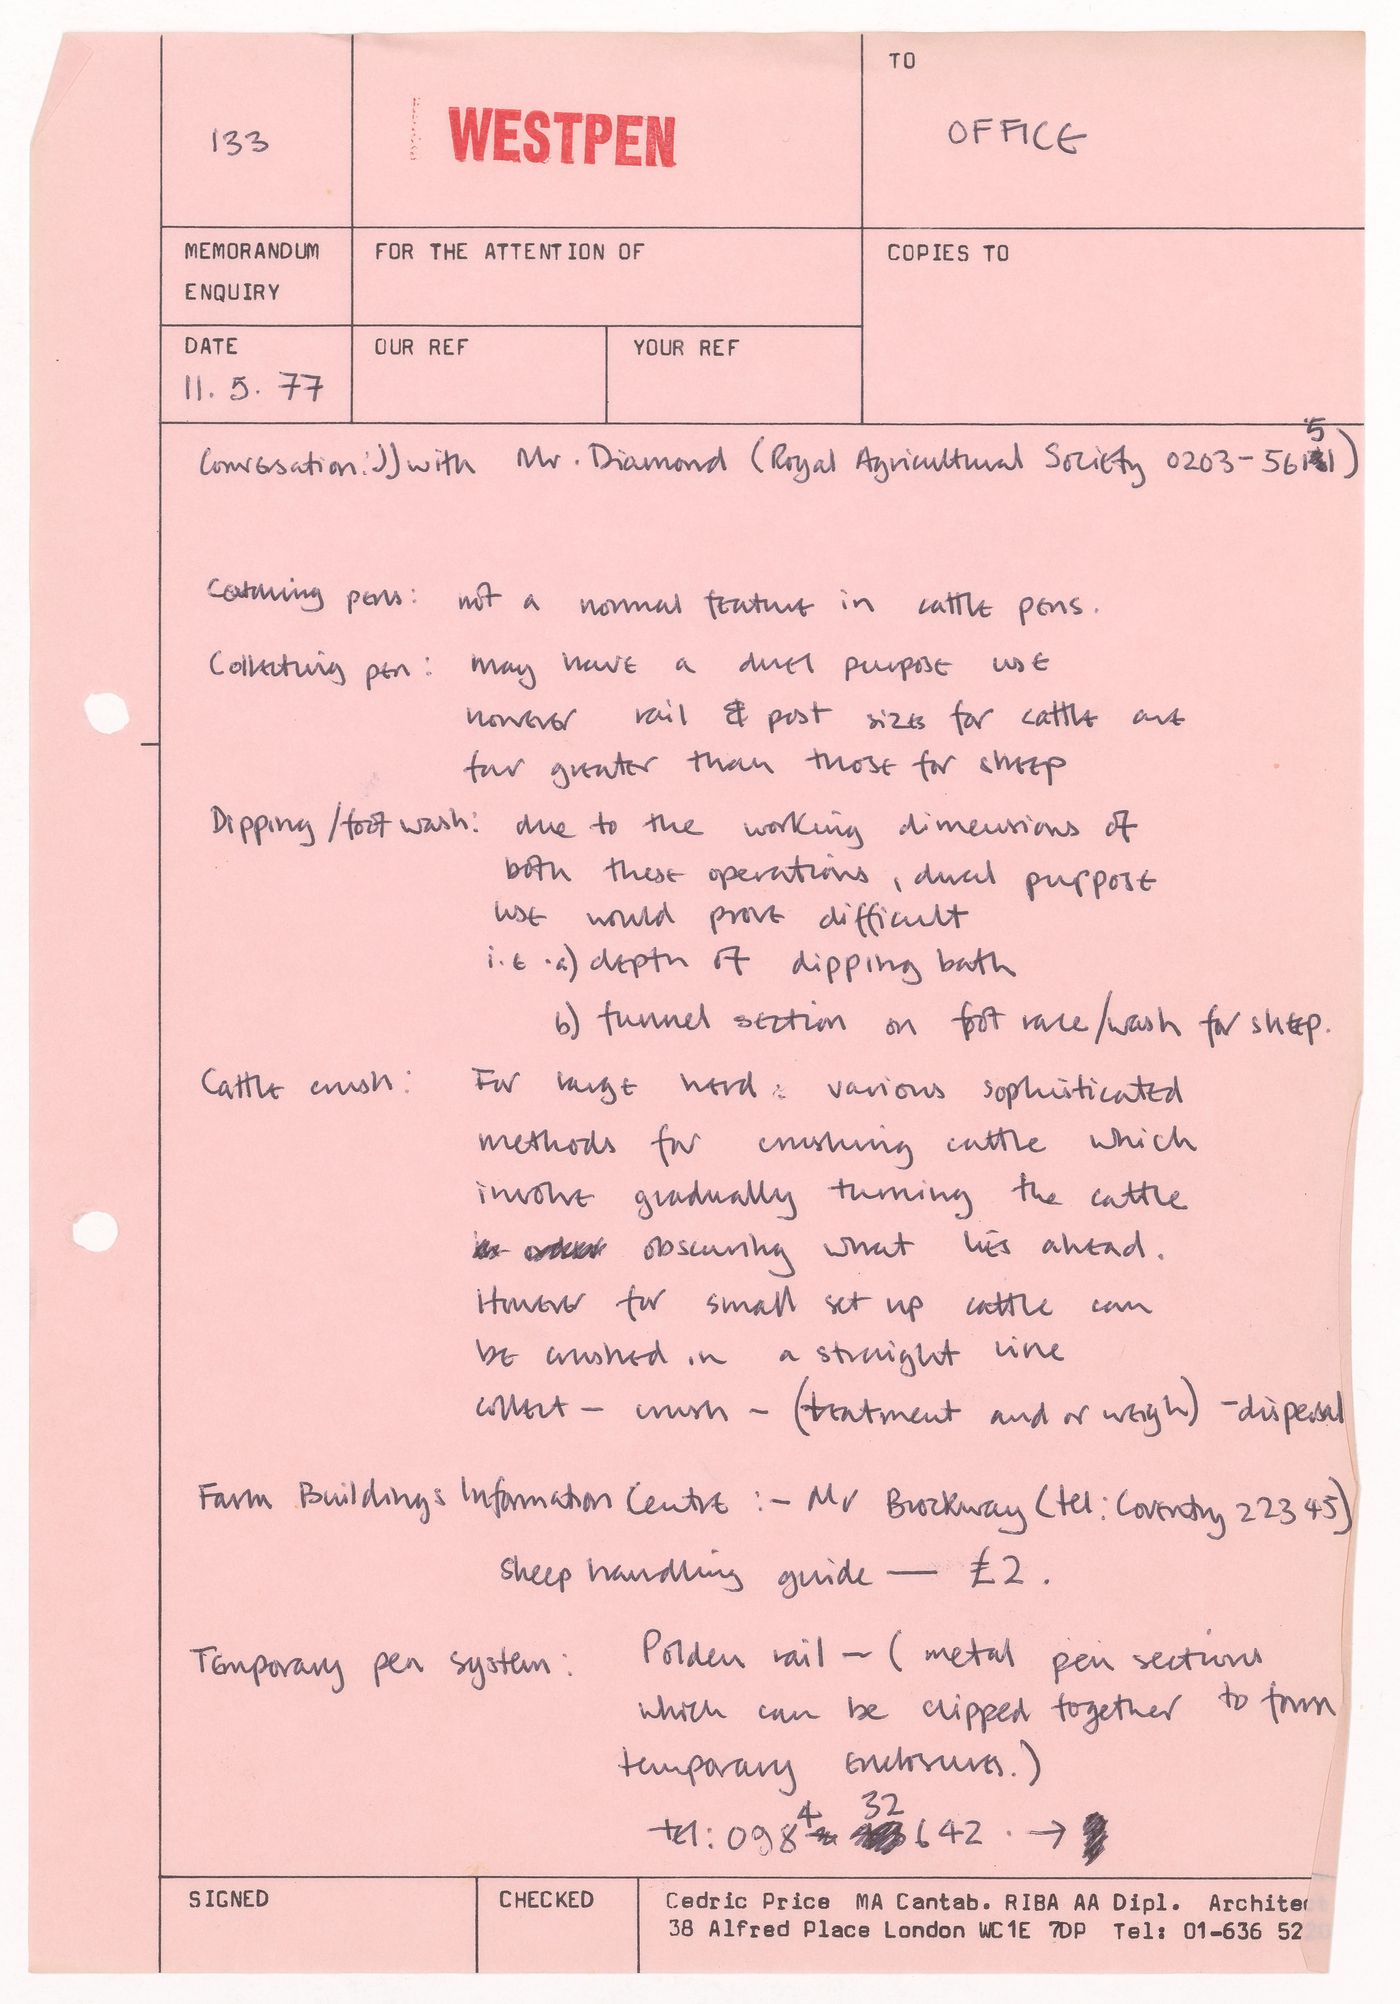 133
WESTPEN
TO
OFFICE
MEMORANDUM
ENQUIRY
FOR THE ATTENTION OF
COPIES TO
DATE
11. 5. 77
OUR REF
YOUR REF
Conversation: JJ with Mr. Diamond (Royal Agricultural Society 0203-56151)
Catching pens: not a normal feature in cattle pens.
Collecting pen: may have a dual purpose use
however rail & post sizes for cattle are
far greater than those for sheep
Dipping/foot wash: due to the working dimensions of
both these operations, dual purpose
use would prove difficult
i.e. a) depth of dipping bath
b) funnel section on foot race/wash for sheep.
Cattle crush: For large herd: various sophisticated
methods for crushing cattle which
involve gradually turning the cattle
obscuring what lies ahead.
However for small set up cattle can
be crushed in a straight line
collect - crush - (treatment and or weigh) - dispersal
Farm Buildings Information Centre :- Mr Brockway (tel: Coventry 22345)
sheep handling guide — £2.
Temporary pen system: Polden rail - (metal pen sections
which can be clipped together to form
temporary enclosures.)
tel: 0984 32642. →
SIGNED
CHECKED
Cedric Price MA Cantab. RIBA AA Dipl. Architect
38 Alfred Place London WC1E 7DP Tel: 01-636 5220